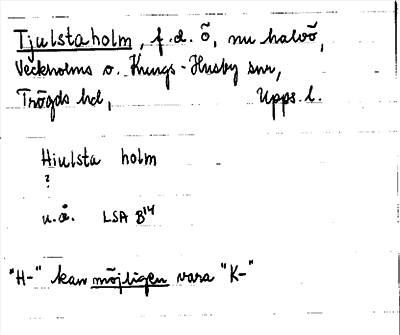 Tjulstaholm, f.d. ö, nu halvö,
Veckholms o. Kungs-Husby snr,
Trögds hd, Upps.l.
Hiulsta holm
?
u.å. LSA B14
"H-" kan möjligen vara "K-"